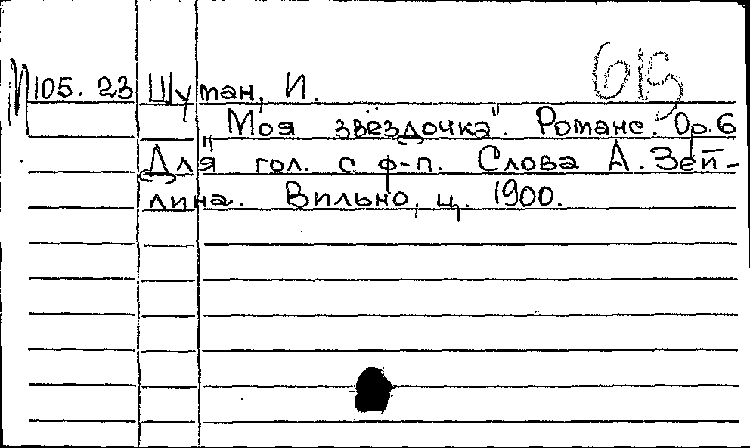 619
М105.23 Шуман, И.
"Моя звёздочка". Романс. Ор.6
Для гол. с ф-п. Слова А. Зей-
лина. Вильно, ц. 1900.